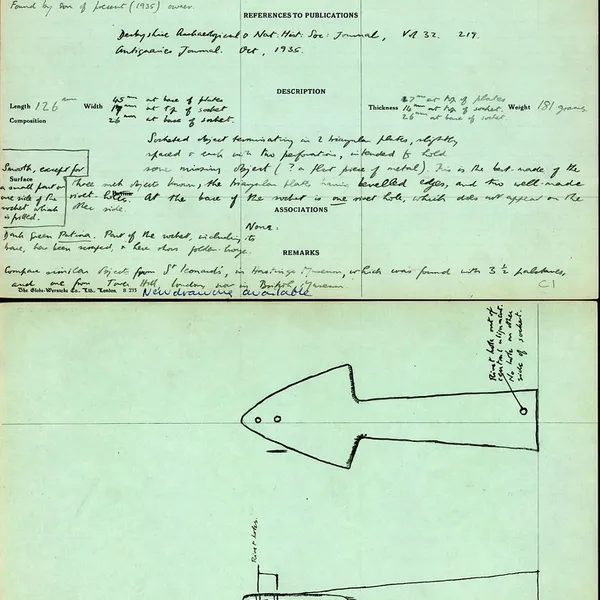 Found by son of present (1935) owner.
REFERENCES TO PUBLICATIONS
Derbyshire Archaeological & Nat. Hist. Soc. Journal, Vol 32. 217.
Antiquaries Journal Oct, 1935.
DESCRIPTION
Length 126 mm Width 45 mm at base of plates
19 mm at top of socket
26 mm at base of socket.
Thickness 27 mm at top of plates
14 mm at top of socket.
26 mm at base of socket.
Weight 181 grams
Composition
Socketed object terminating in 2 triangular plates, slightly
spaced & each with two perforation, intended to hold
some missing object (? a flat piece of metal). This is the best made of the
three such objects known, the triangular plates having bevelled edges, and two well-made
rivet holes. At the base of the socket is one rivet hole, which does not appear on the
other side.
Surface
Smooth, except for
a small part on
one side of the
socket which
is pitted.
Patina
Dark Green Patina. Part of the socket, including its
base, has been scraped, & here shows golden bronze.
ASSOCIATIONS
None.
REMARKS
Compare similar object from St Leonards, in Hastings Museum, which was found with 3 ½ palstaves,
and one from Tower Hill, London, now in British Museum.
The Globe-Wernicke Co., Ltd., London. B 275
New drawing available
C1
Rivet hole out of
central alignment.
No hole on other
side of socket.
Rivet holes.